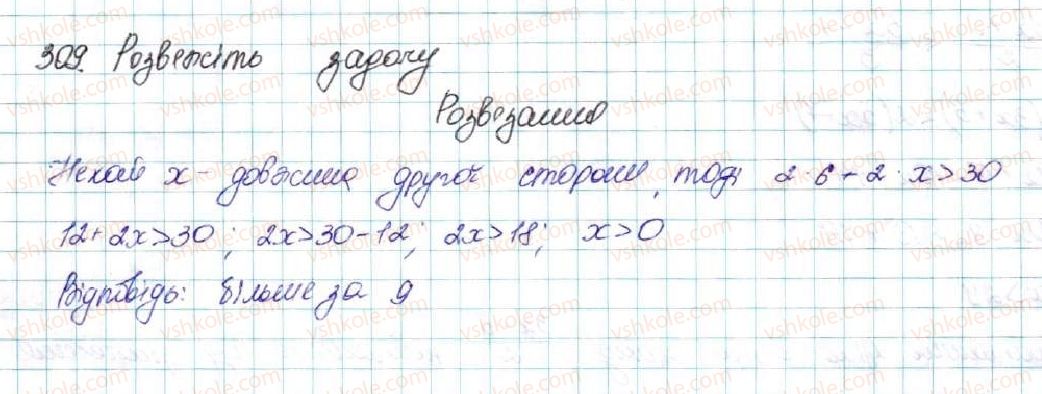 309. Розв'яжіть задачу
Розв'язання
Нехай х - довжина другої сторони, тоді 2·6+2·х>30
12+2х>30; 2х>30-12; 2х>18; х>0
Відповідь: більше за 9